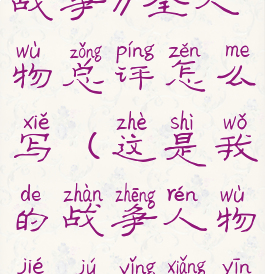 战争 人
wù zǒng píng zěn me
物总评怎么
xiě zhè shì wǒ
写(这是我
de zhàn zhēng rén wù
的战争人物
jié jú yǐng xiǎng yīn